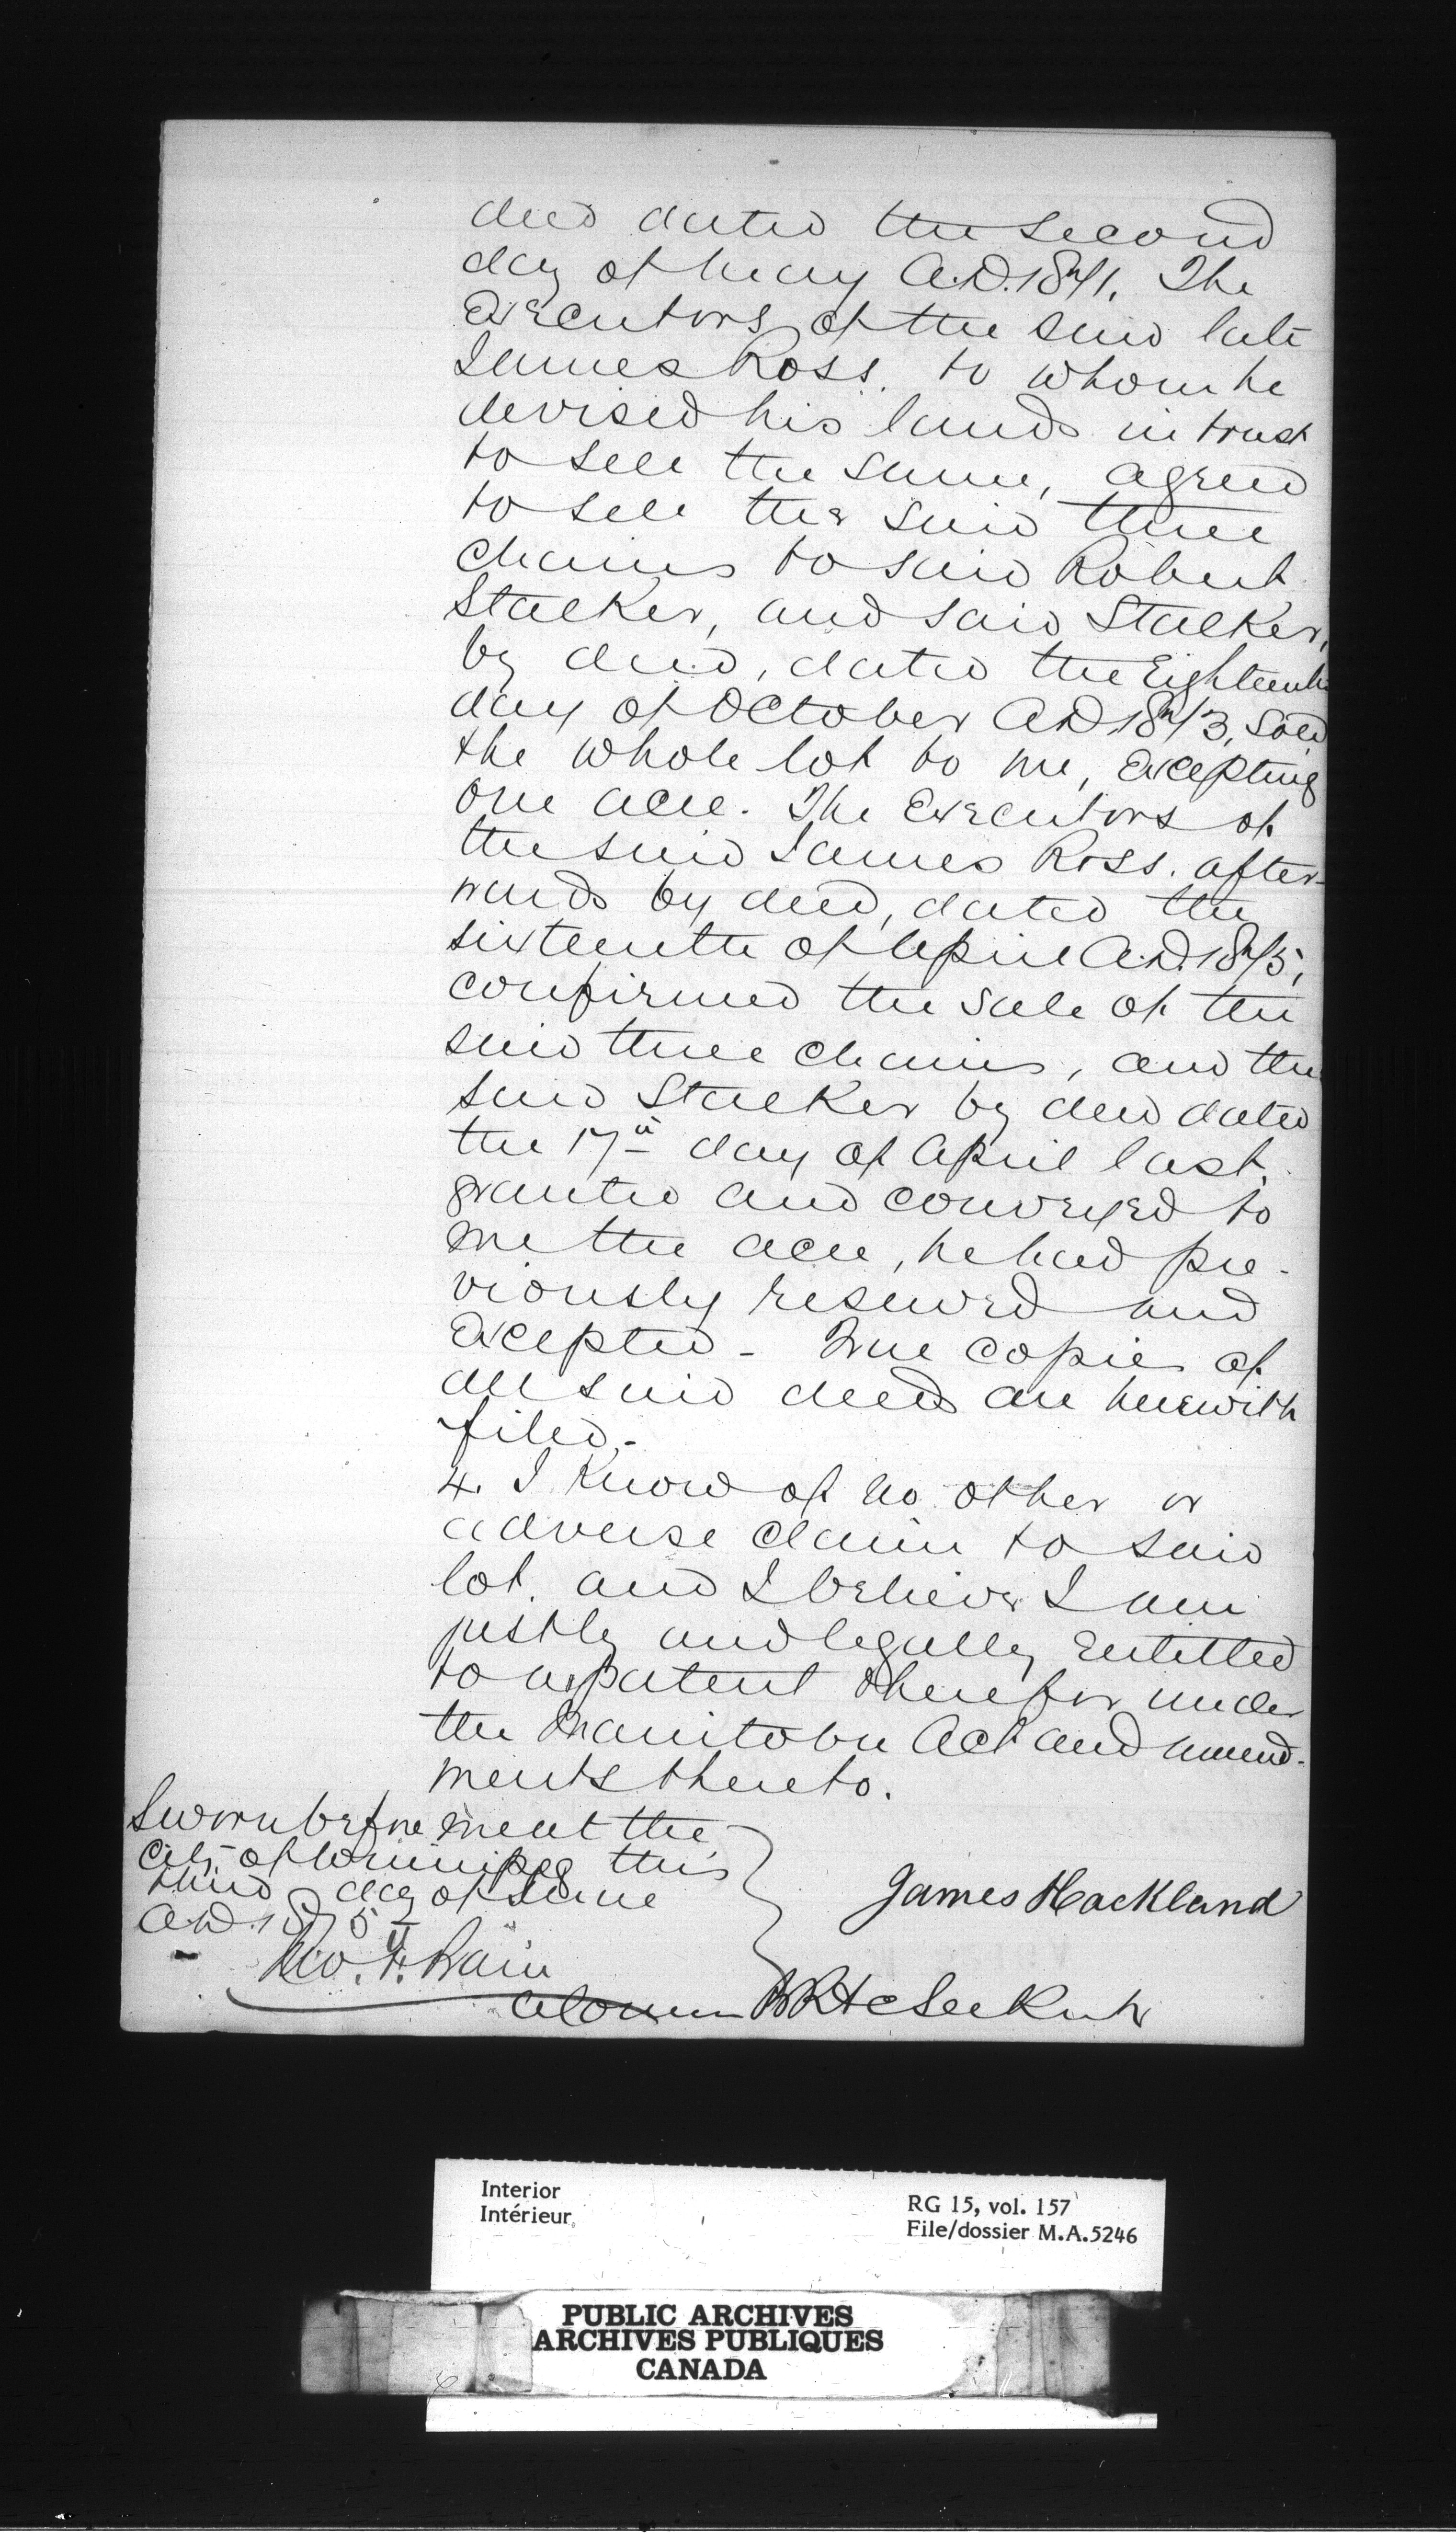 deed dated the second
day of May A.D. 1871. The
Executors of the said late
James Ross. to whom he
devised his lands in trust
to sell the same, agreed
to sell the said three
chains to said Robert
Stalker, and said Stalker,
by deed, dated the Eighteenth
day of October A.D. 1873, sold
the whole lot to me, Excepting
one acre. The Executors of
the said James Ross. after-
wards by deed, dated the
sixteenth of April A.D. 1875,
confirmed the sale of the
said three chains, and the
said Stalker by deed dated
the 17th day of April last,
granted and conveyed to
me the acre, he had pre-
viously reserved and
Excepted - True copies of
all said deeds are herewith
filed. -
4. I Know of no other or
adverse claim to said
lot, and I believe I am
justly and legally Entitled
to a patent therefor under
the Manitoba Act and amend-
ments thereto.
Sworn before me at the
City of Winnipeg this
third day of June
A.D. 1875
James Hackland
A Comm BR &c
Interior
Intérieur
RG 15, vol. 157
File/dossier M.A.5246
PUBLIC ARCHIVES
ARCHIVES PUBLIQUES
CANADA